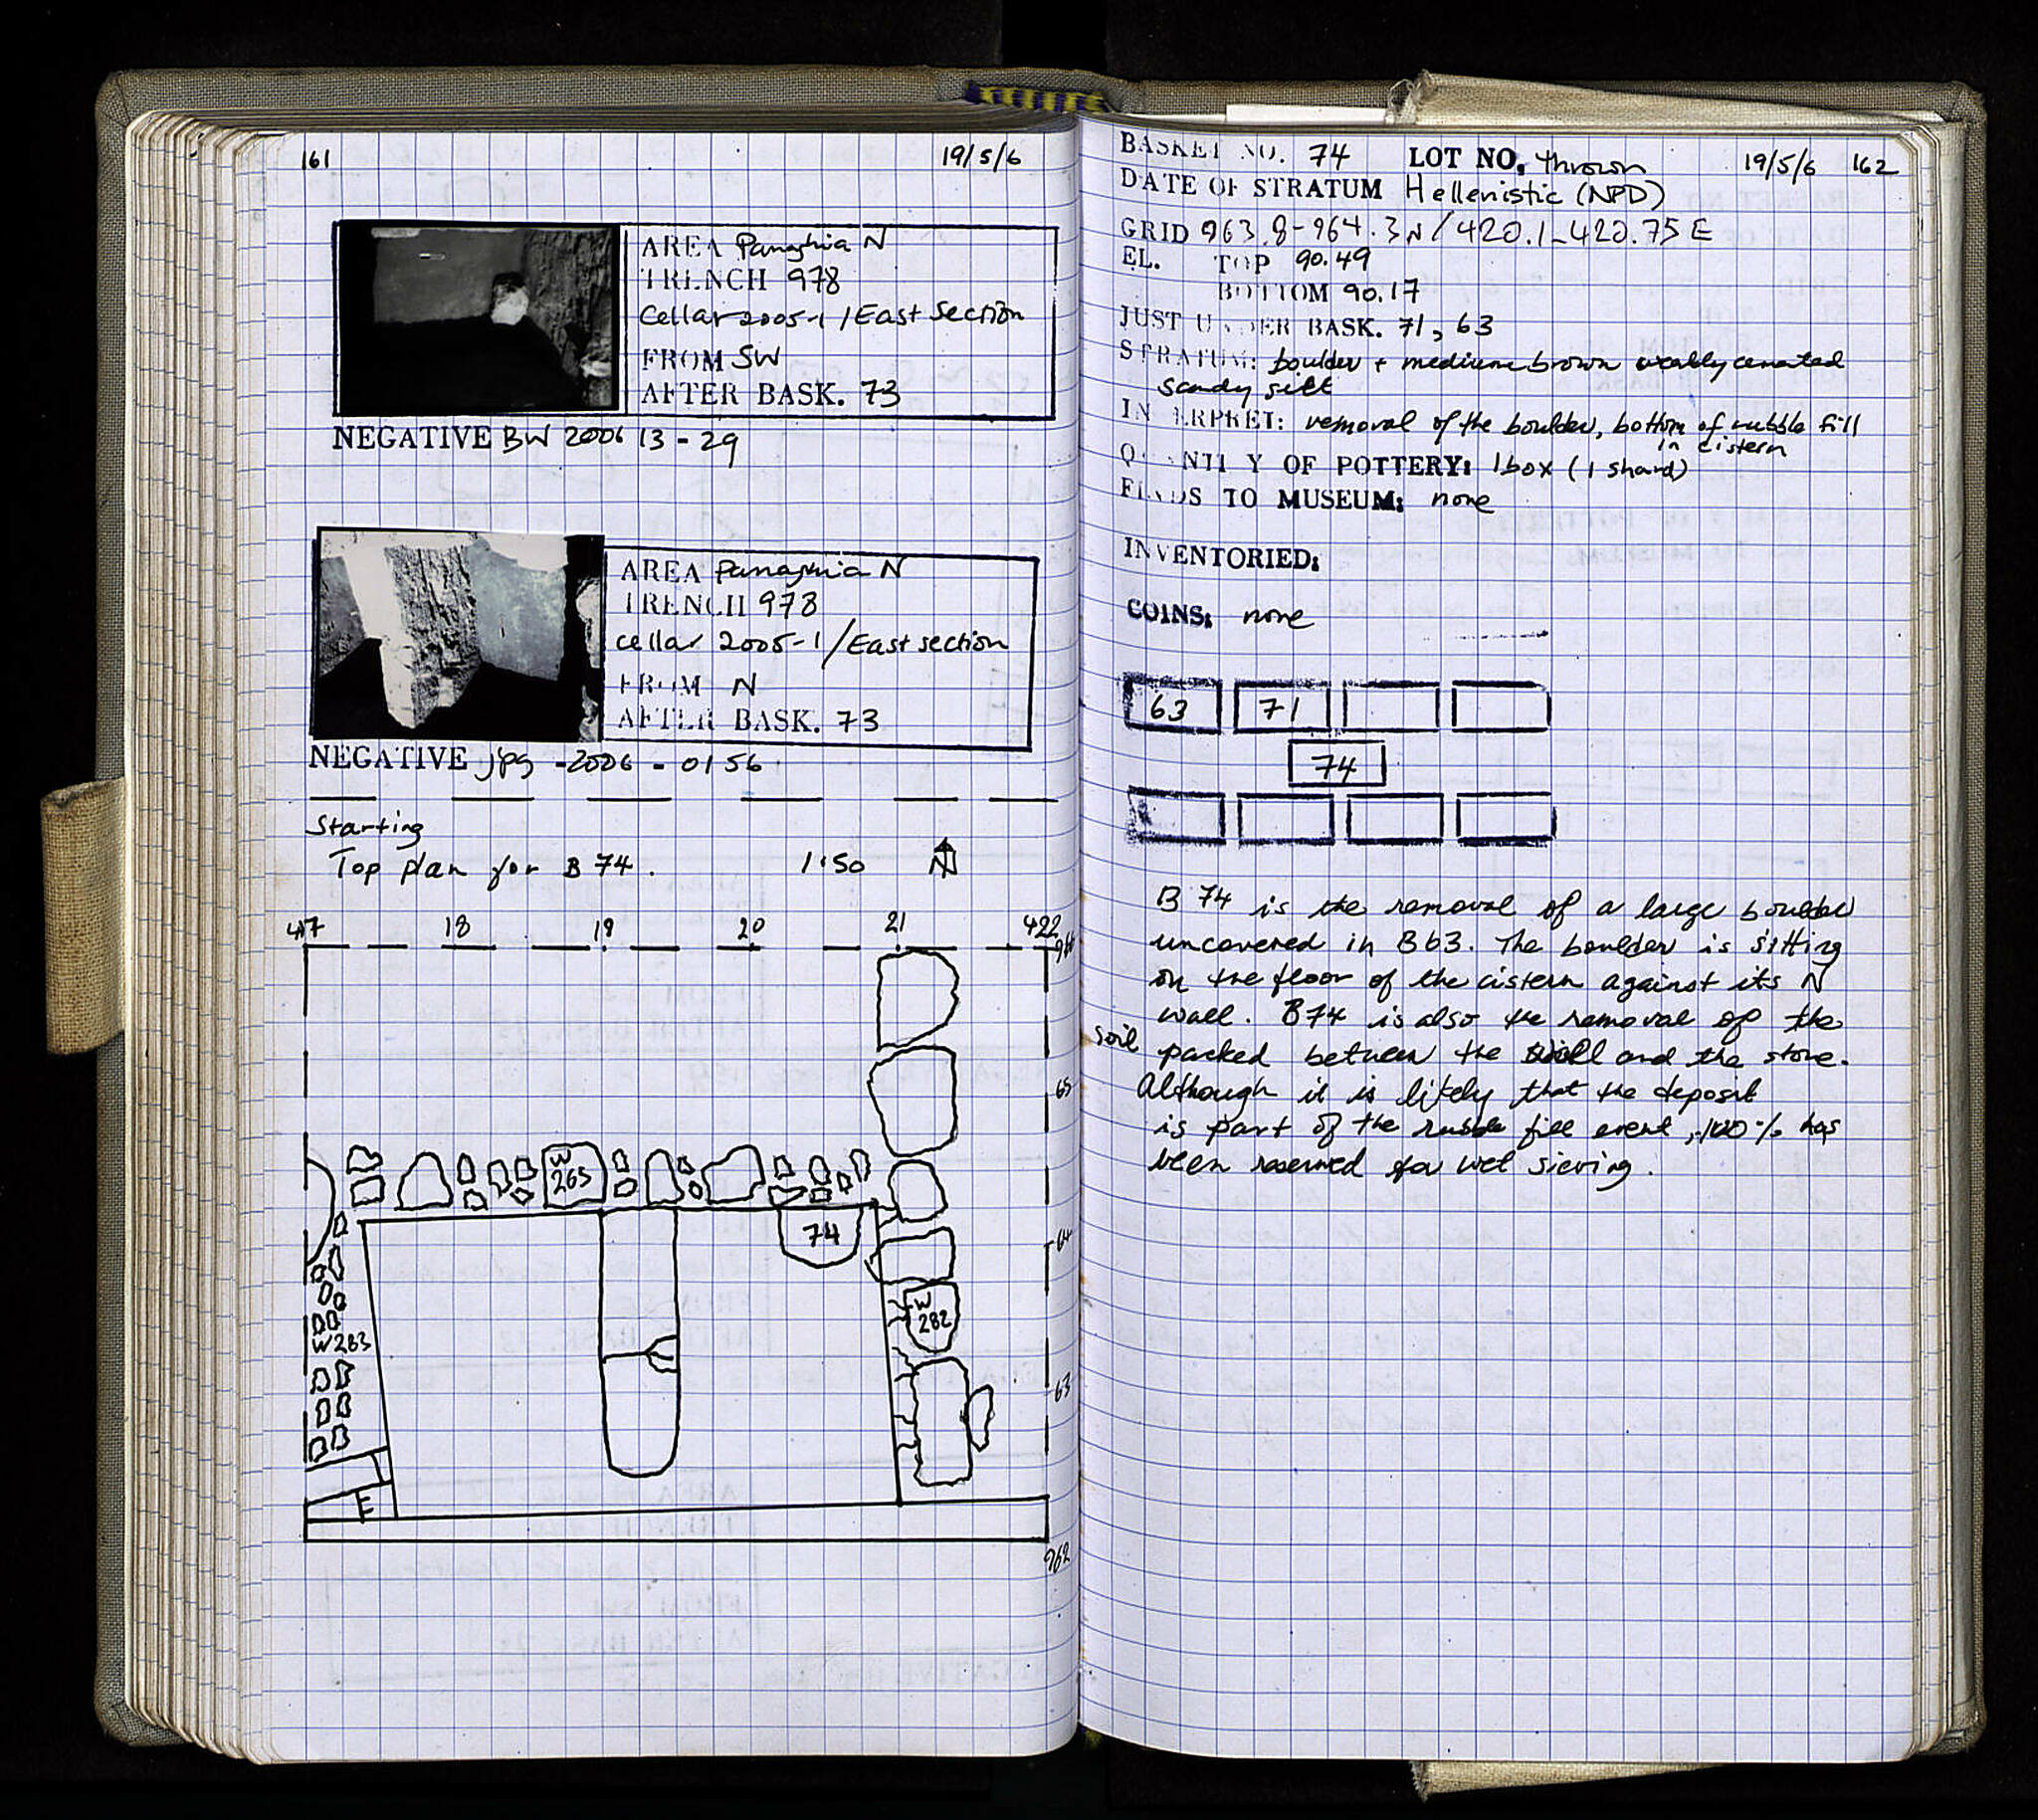 161 19/5/6
AREA Panaghia N
TRENCH 978
Cellar 2005-1 / East section
FROM SW
AFTER BASK. 73
NEGATIVE BW 2006 13-29
AREA Panaghia N
TRENCH 978
cellar 2005-1 / East section
FROM N
AFTER BASK. 73
NEGATIVE jpg -2006 - 0156
Starting
Top plan for B 74. 1:50 N
417 18 19 20 21 422
966
65
W 265
74
64
W 282
W 283
63
E
962
BASKET NO. 74 LOT NO. thrown 19/5/6 162
DATE OF STRATUM Hellenistic (NPD)
GRID 963.8-964.3N/420.1-420.75E
EL. TOP 90.49
BOTTOM 90.17
JUST UNDER BASK. 71, 63
STRATUM: boulder + medium brown weakly cemated
sandy silt
INTERPRET: removal of the boulder, bottom of rubble fill
in cistern
QUANTITY OF POTTERY: 1 box (1 shard)
FINDS TO MUSEUM: none
INVENTORIED:
COINS: none
63 71
74
B 74 is the removal of a large boulder
uncovered in B63. The boulder is sitting
on the floor of the cistern against its N
wall. B74 is also the removal of the
soil packed between the wall and the stone.
Although it is likely that the deposit
is part of the rubble fill event, 100% has
been reserved for wet sieving.